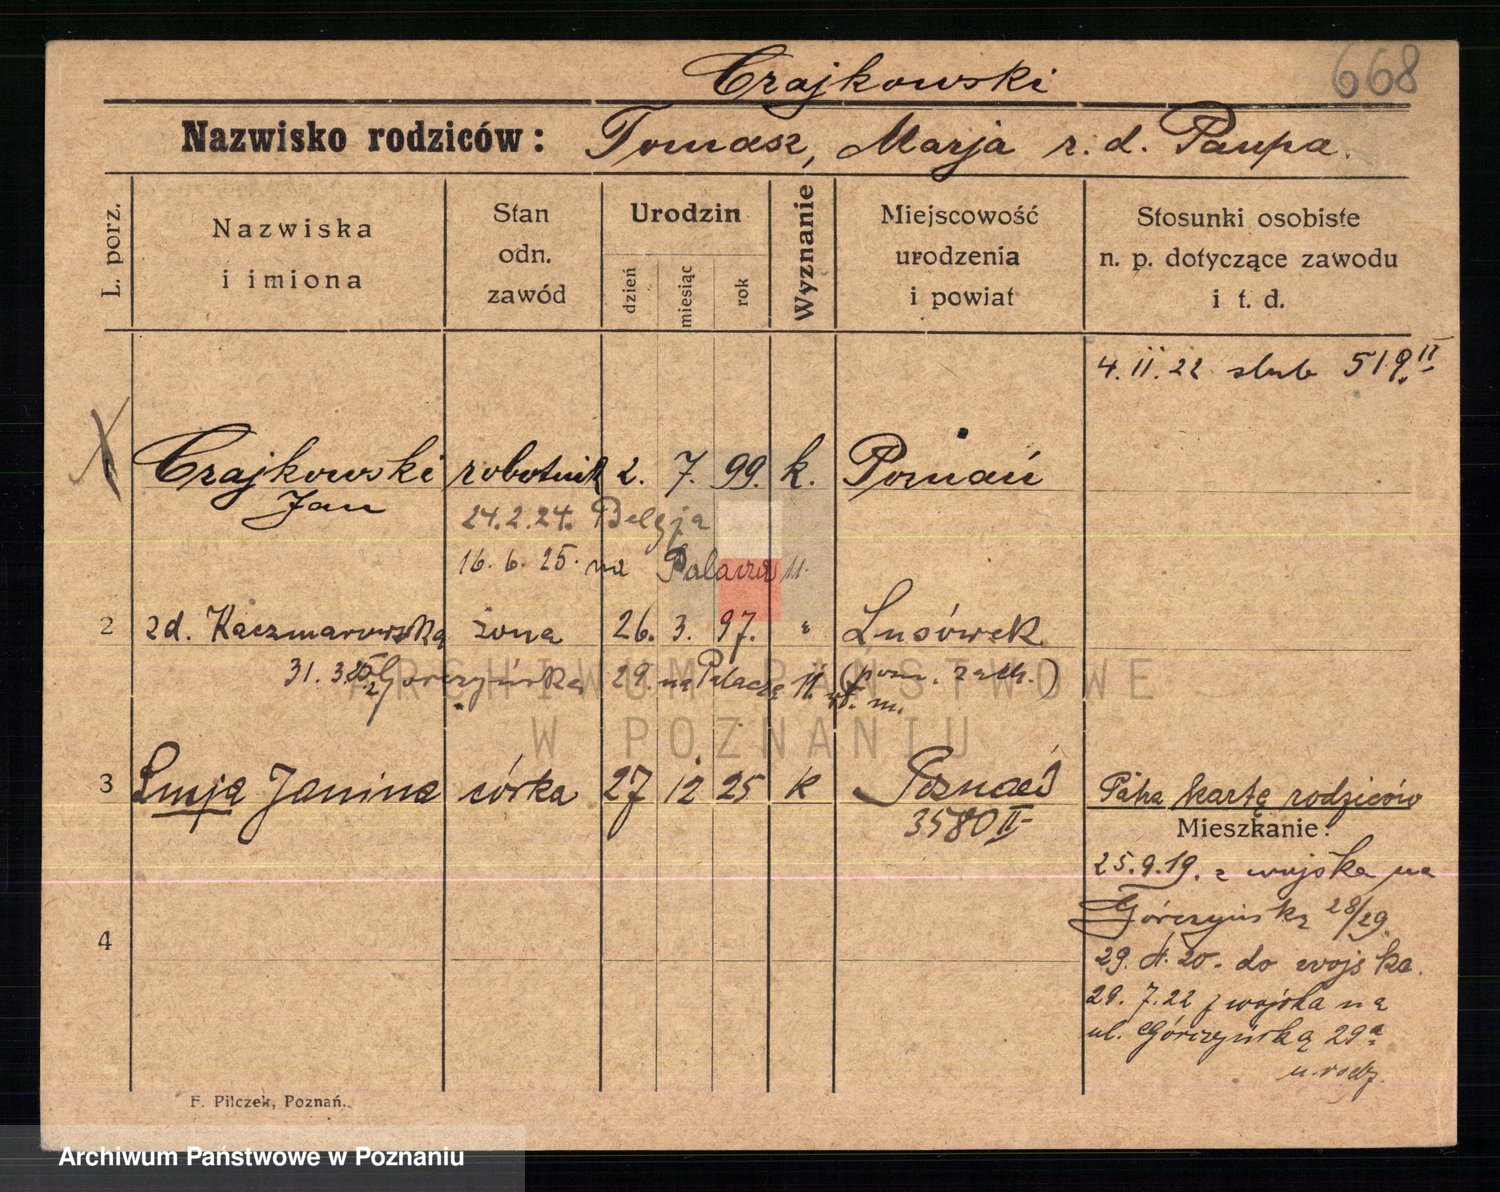 Czajkowski 668
Nazwisko rodziców: Tomasz, Marja z. d. Paupa.
L. porz.
Nazwiska
i imiona
Stan
odn.
zawód
Urodzin
dzień
miesiąc
rok
Wyznanie
Miejscowość
urodzenia
i powiat
Stosunki osobiste
n. p. dotyczące zawodu
i t. d.
4. II. 22 slub 519. II
Czajkowski robotnik 2. 7. 99. k. Poznań
Jan
24.2.24. Belgja
16. 6. 25. na Palacza 11.
2 zd. Kaczmarowska żona 26. 3. 97. " Lusówek
31. 3. Gorczyńska 29. na Palacza 11 (pozn. zach.)
3 Łucja Janina córka 27 12 25 k Poznań
3580 II
Patrz kartę rodziców
Mieszkanie:
25.9.19. z wojska na
Górczyńską 28/29.
29. 20. do wojska.
29. 7.22 z wojska na
ul. Górczyńską 29a
u rodz.
4
F. Pilczek, Poznań.
ARCHIWUM PAŃSTWOWE
W POZNANIU
Archiwum Państwowe w Poznaniu